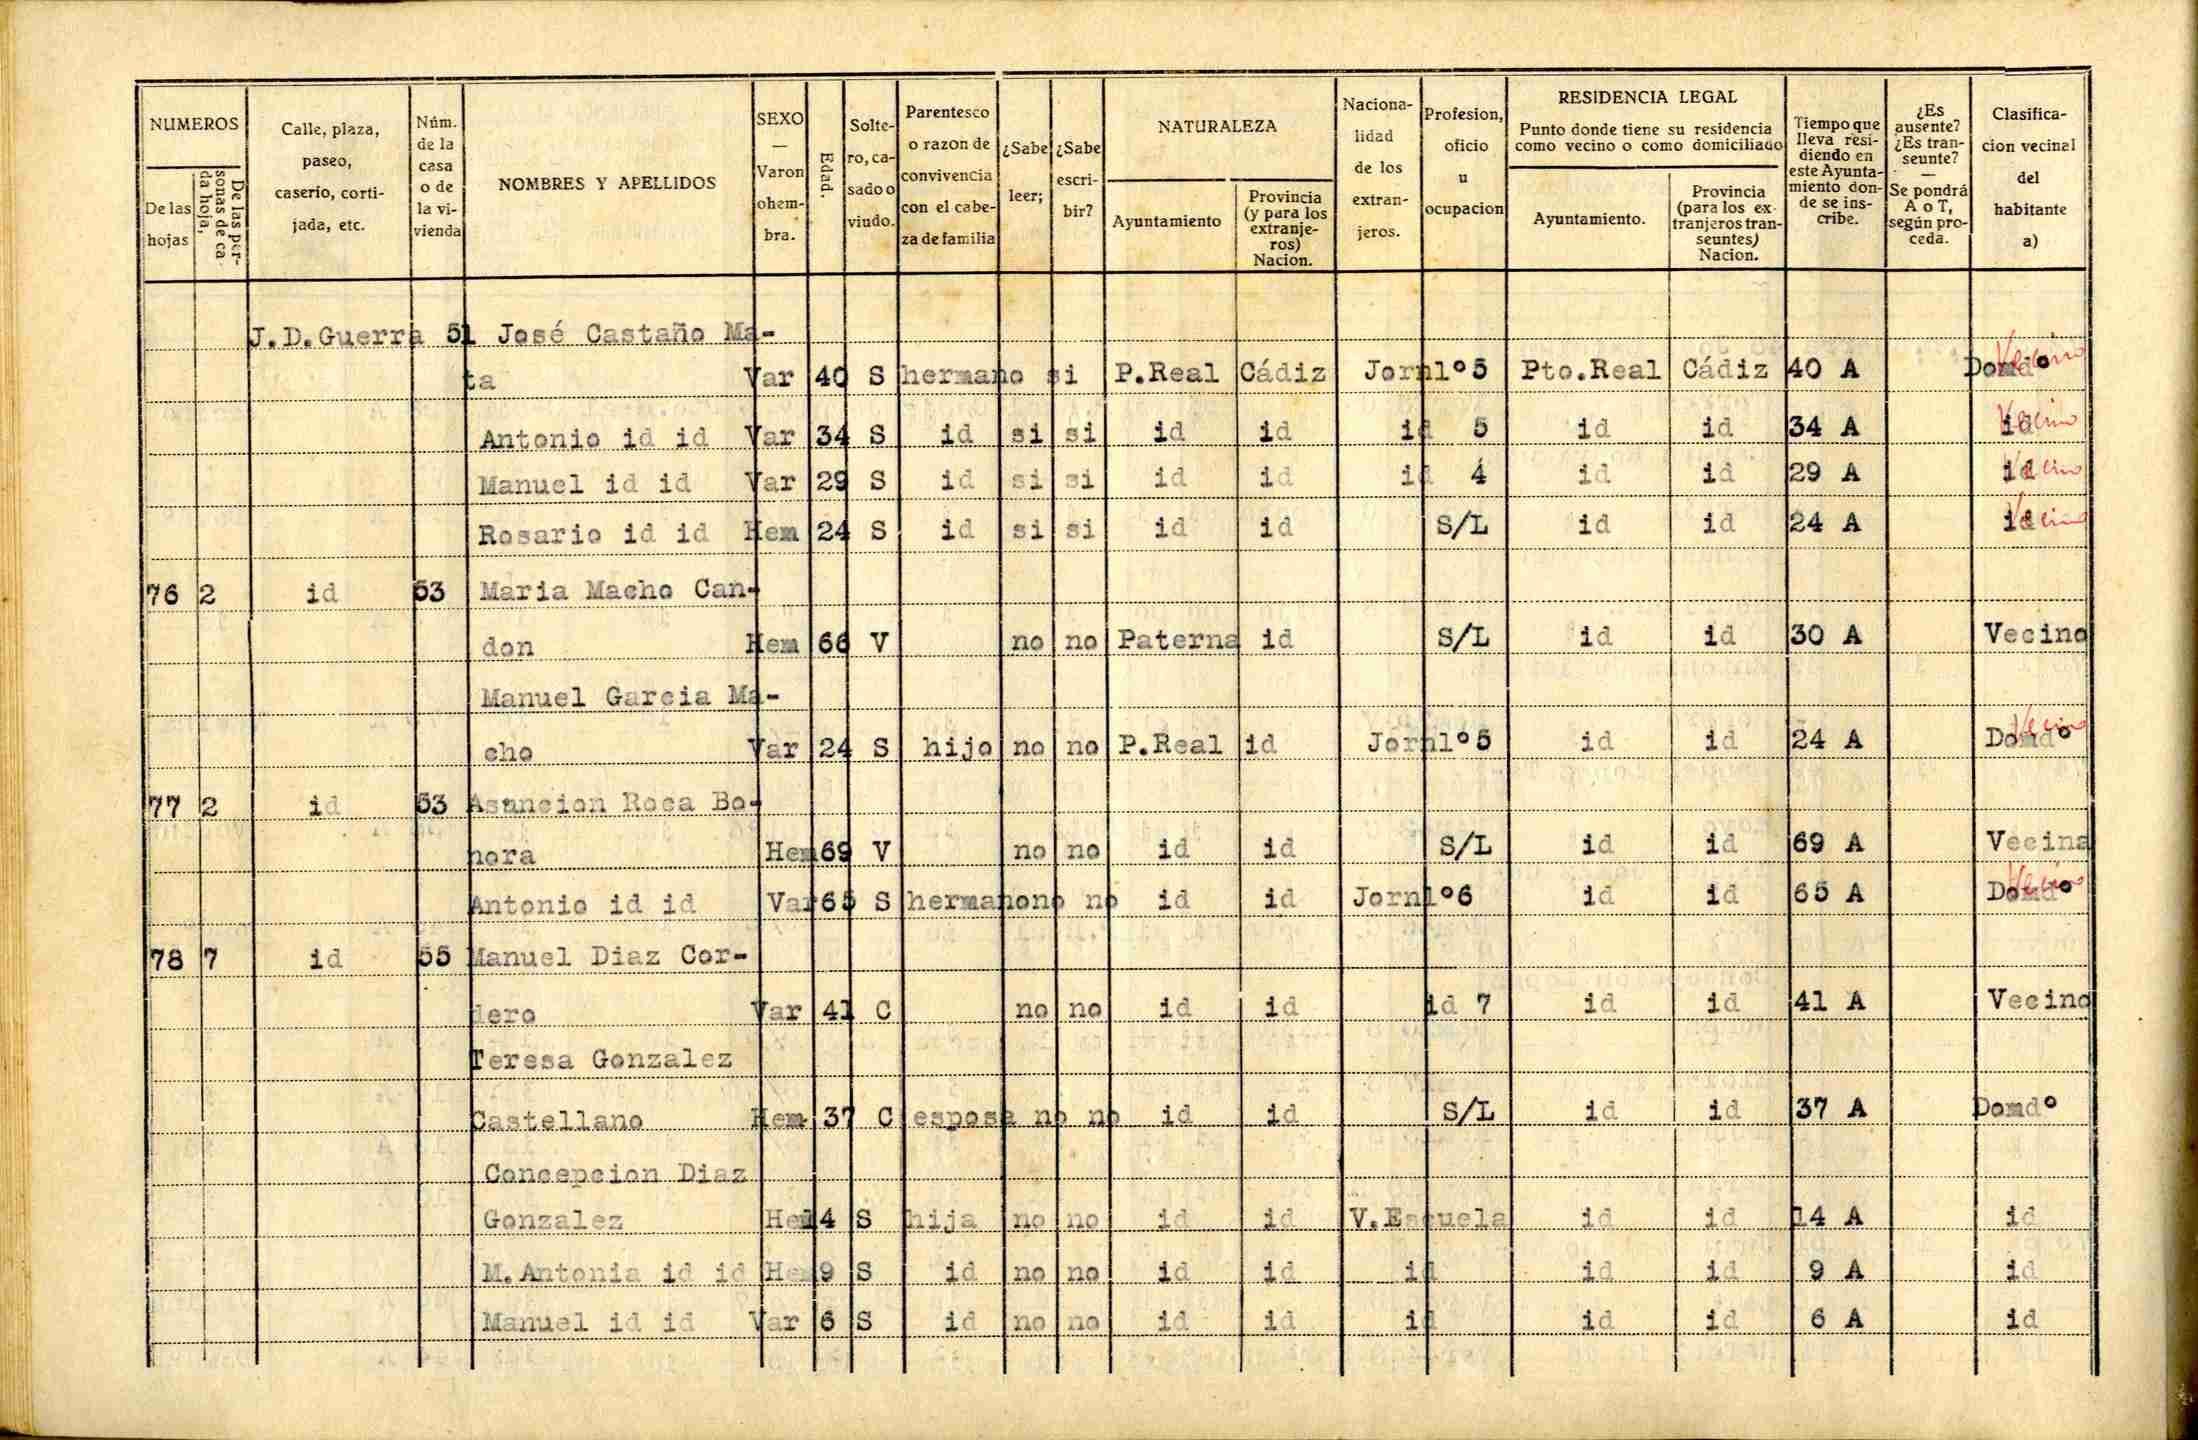 NUMEROS
De las hojas
De las personas de cada hoja,
Calle, plaza, paseo, caserio, cortijada, etc.
Núm. de la casa o de la vivienda
NOMBRES Y APELLIDOS
SEXO — Varon ohembra.
Edad.
Soltero, casado o viudo.
Parentesco o razon de convivencia con el cabeza de familia
¿Sabe leer;
¿Sabe escribir?
NATURALEZA
Ayuntamiento
Provincia (y para los extranjeros) Nacion.
Nacionalidad de los extranjeros.
Profesion, oficio u ocupacion
RESIDENCIA LEGAL
Punto donde tiene su residencia como vecino o como domiciliado
Ayuntamiento.
Provincia (para los extranjeros transeuntes) Nacion.
Tiempo que lleva residiendo en este Ayuntamiento donde se inscribe.
¿Es ausente? ¿Es transeunte? — Se pondrá A o T, según proceda.
Clasificacion vecinal del habitante a)
J.D.Guerra 51 José Castaño Ma-
ta Var 40 S hermano si P.Real Cádiz Jornlº5 Pto.Real Cádiz 40 A Domdº Vecino
Antonio id id Var 34 S id si si id id id 5 id id 34 A id Vecino
Manuel id id Var 29 S id si si id id id 4 id id 29 A id Vecino
Rosario id id Hem 24 S id si si id id S/L id id 24 A id Vecino
76 2 id 53 Maria Macho Can-
don Hem 66 V no no Paterna id S/L id id 30 A Vecino
Manuel Garcia Ma-
cho Var 24 S hijo no no P.Real id Jornlº5 id id 24 A Domdº Vecino
77 2 id 53 Asuncion Roca Bo-
hora Hem 69 V no no id id S/L id id 69 A Vecina
Antonio id id Var 65 S hermano no no id id Jornlº6 id id 65 A Domdº Vecino
78 7 id 55 Manuel Diaz Cor-
dero Var 41 C no no id id id 7 id id 41 A Vecino
Teresa Gonzalez
Castellano Hem 37 C esposa no no id id S/L id id 37 A Domdº
Concepcion Diaz
Gonzalez Hem 14 S hija no no id id V.Escuela id id 14 A id
M.Antonia id id Hem 9 S id no no id id id id id 9 A id
Manuel id id Var 6 S id no no id id id id id 6 A id